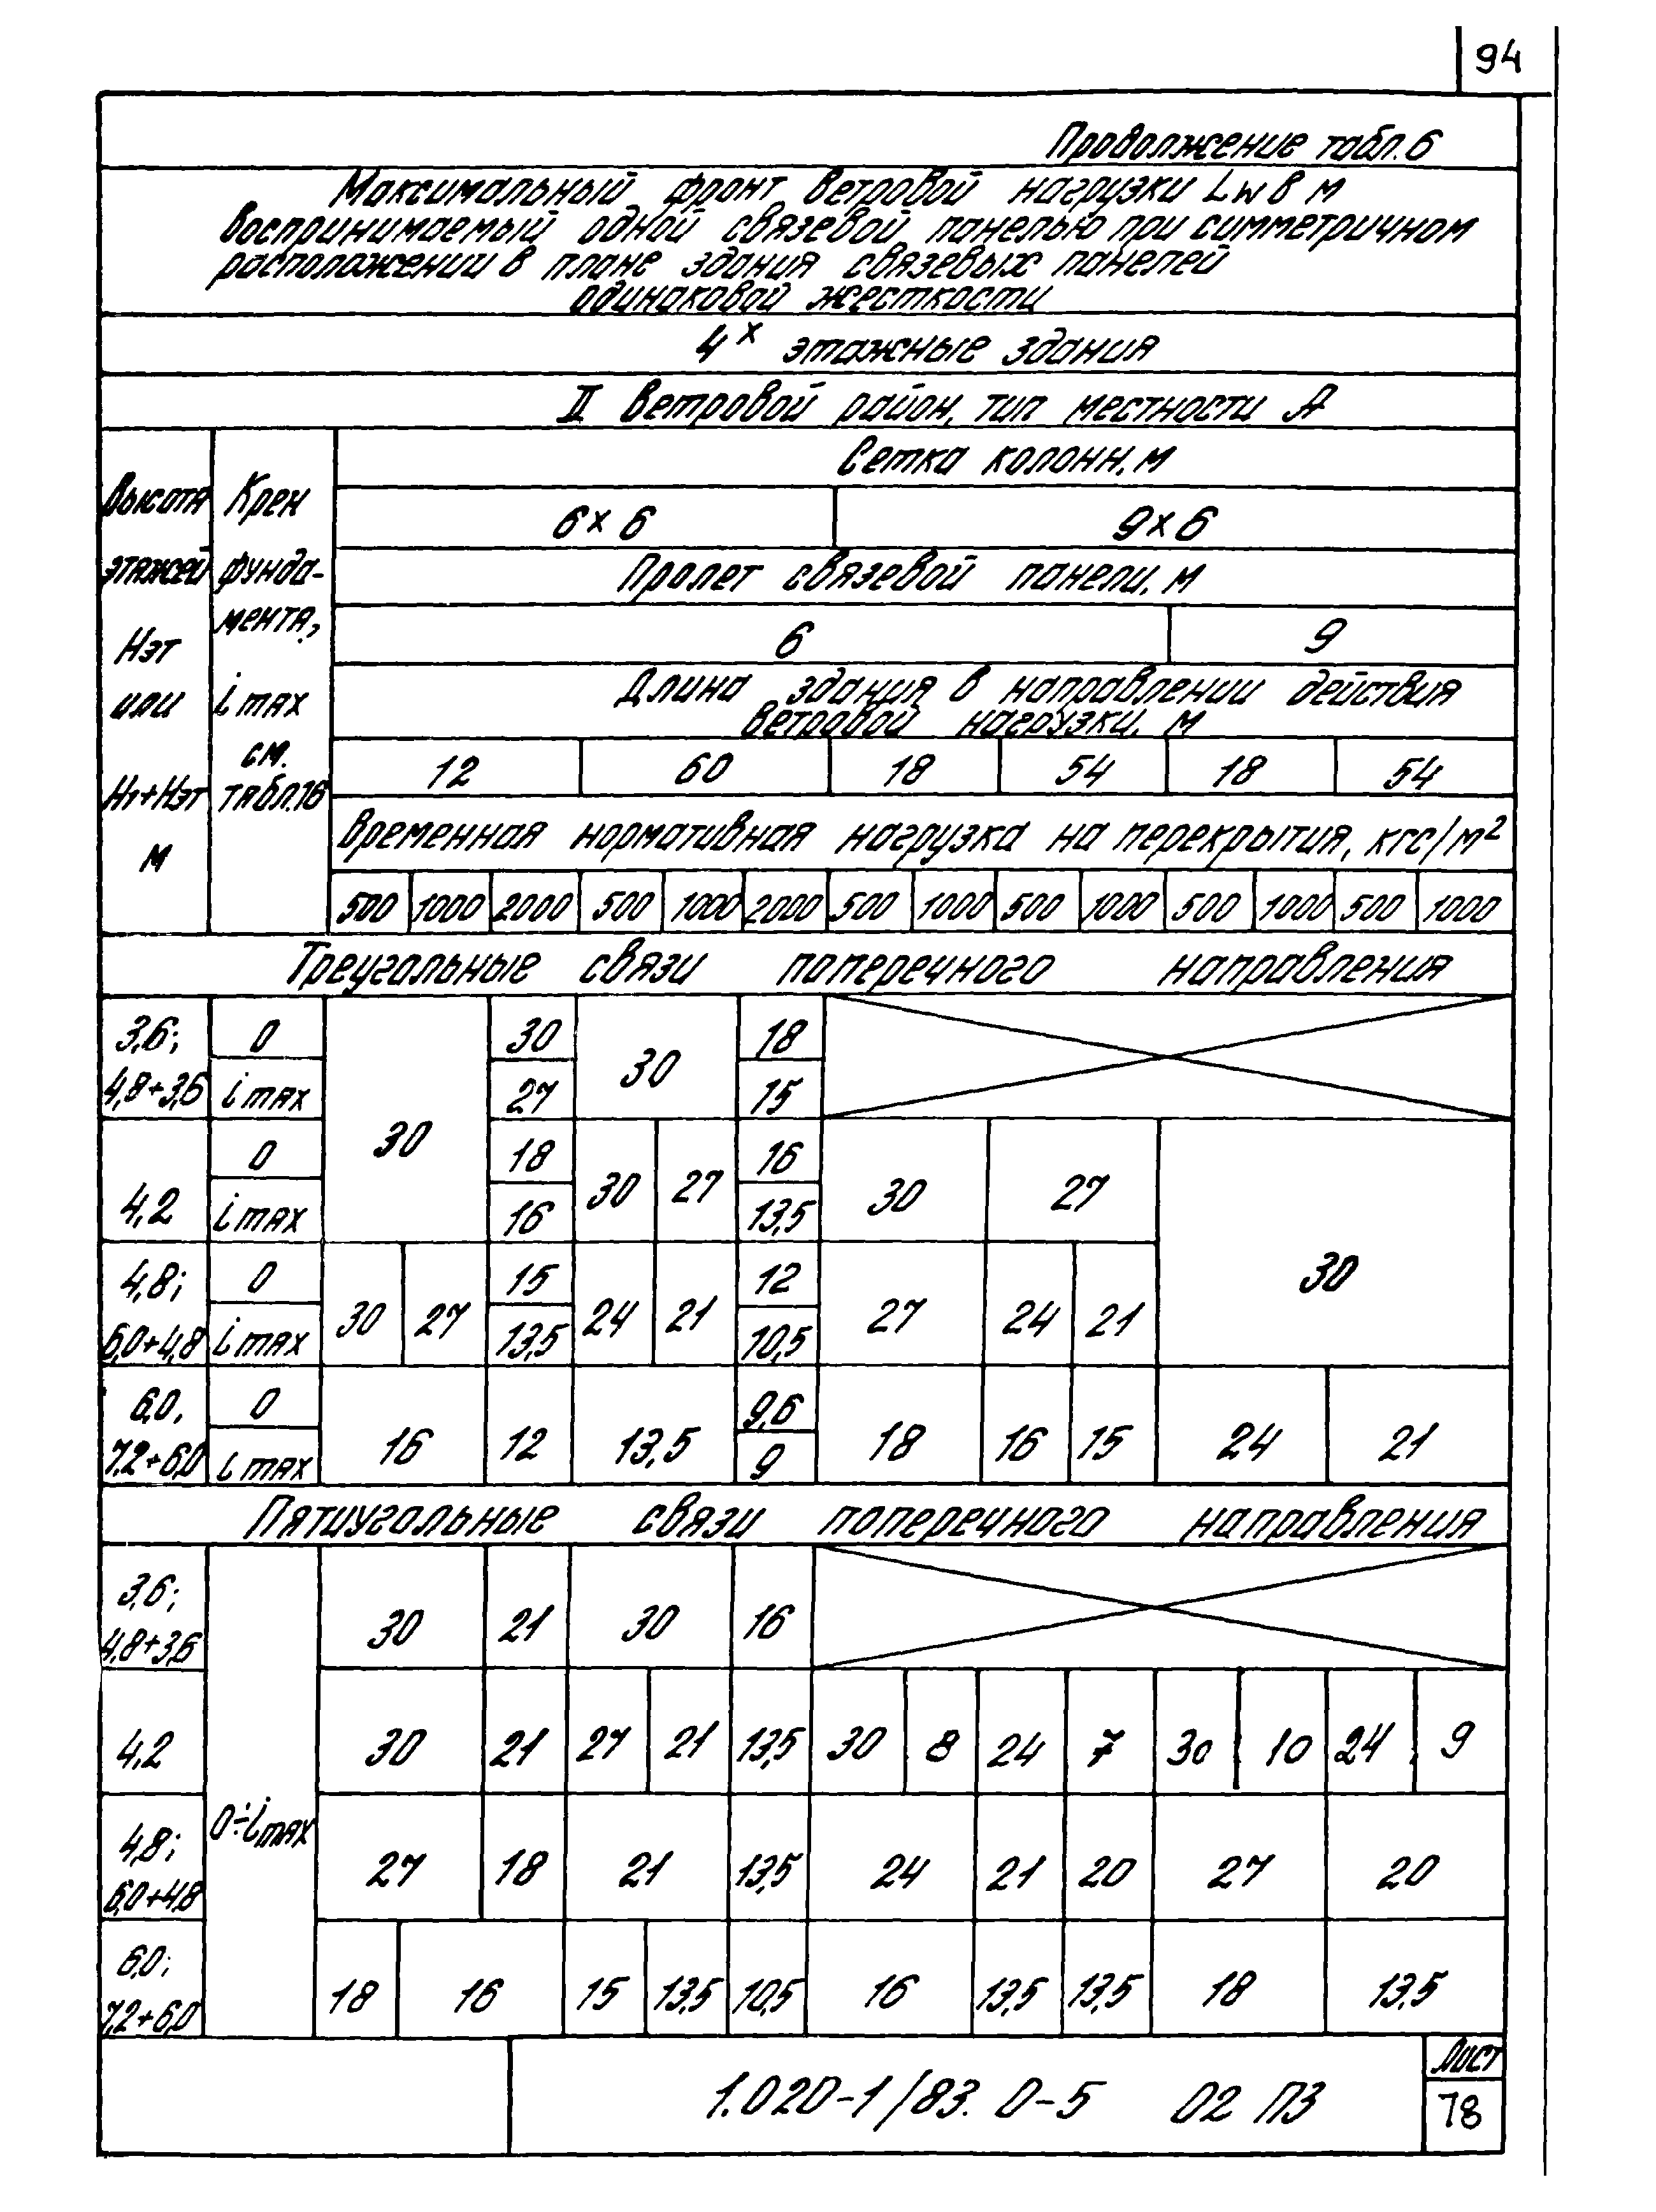 94
Продолжение табл.6
Максимальный фронт ветровой нагрузки Lw в м
воспринимаемый одной связевой панелью при симметричном
расположении в плане здания связевых панелей
одинаковой жесткости
4х этажные здания
II ветровой район, тип местности А
Высота этажей Нэт или Н1+Нэт м
Крен фунда-мента, i max см. табл.16
Сетка колонн, м
6×6 9×6
Пролет связевой панели, м
6 9
Длина здания в направлении действия
ветровой нагрузки, м
12 60 18 54 18 54
Временная нормативная нагрузка на перекрытия, кгс/м²
500 1000 2000 500 1000 2000 500 1000 500 1000 500 1000 500 1000
Треугольные связи поперечного направления
3,6; 0 30 30 18
4,8+3,6 i max 30 27 15
0 30 18 16
4,2 i max 16 30 27 13,5 30 27
4,8; 0 15 12 30
6,0+4,8 i max 30 27 13,5 24 21 10,5 27 24 21
6,0, 0 9,6
7,2+6,0 i max 16 12 13,5 9 18 16 15 24 21
Пятиугольные связи поперечного направления
3,6;
4,8+3,6 30 21 30 16
4,2 30 21 27 21 13,5 30 8 24 7 30 10 24 9
0÷imax
4,8;
6,0+4,8 27 18 21 13,5 24 21 20 27 20
6,0;
7,2+6,0 18 16 15 13,5 10,5 16 13,5 13,5 18 13,5
1.020-1/83. 0-5 02 ПЗ
Лист
78